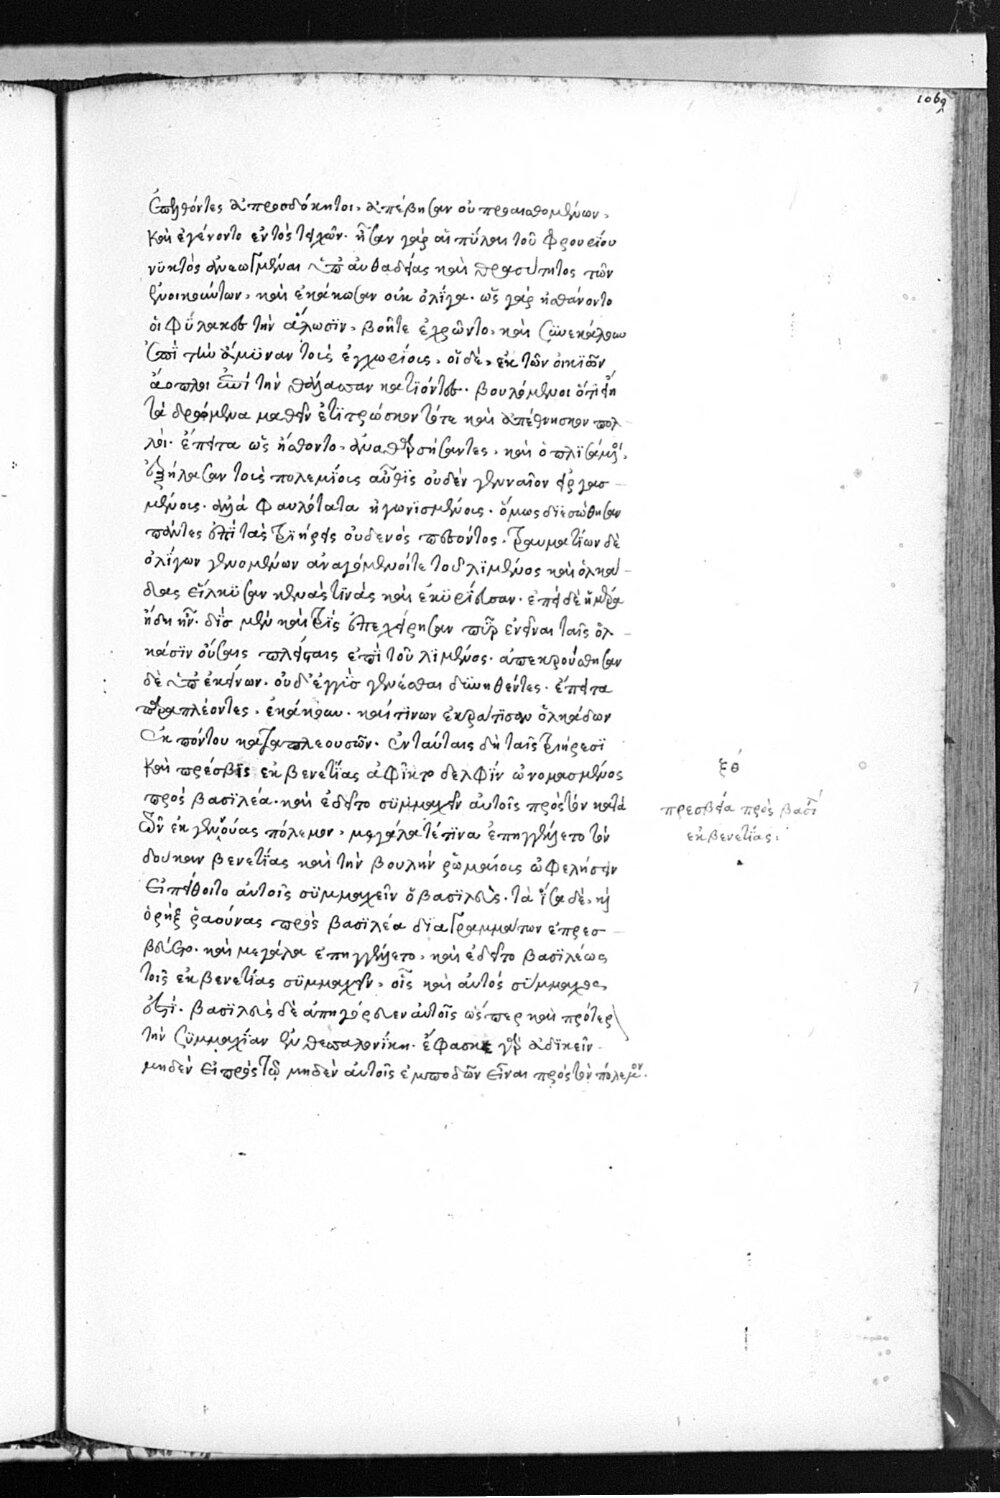 1069
ἐπελθόντες ἀπροσδόκητοι, ἀπέβησαν οὐ προαισθομένων,
καὶ ἐγένοντο ἐντὸς τειχῶν. ἦσαν γὰρ αἱ πύλαι τοῦ φρουρίου
νϋκτὸς ἀνεωγμέναι ὑπ' αὐθαδείας καὶ θρασύτητος τῶν
ἐνοικούντων, καὶ ἐκάκωσαν οὐκ ὀλίγα. ὡς γὰρ ἠσθάνοντο
οἱ φύλακες τὴν ἅλωσϊν, βοῇτε ἐχρῶντο, καὶ συνεκάλουν
ἐπὶ τὴν ἄμϋναν τοῖς ἐγχωρίοις, οἱ δὲ, ἐκ τῶν οἰκιῶν
ἄοπλοι ἐπὶ τὴν θάλασσαν κατϊόντες. βουλόμενοι ὅ,τι εἴη
τὰ δρώμενα μαθεῖν ἐτϊτρώσκοντότε καὶ ἀπέθνησκον πολ
λοί. ἔπειτα ὡς ᾔσθοντο, ἀναθαρσήσαντες, καὶ ὁπλϊσάμενοι,
ἐξήλασαν τοὺς πολεμίους αὖθϊς οὐδὲν γενναῖον εἰργασ
μένους. ἀλλὰ φαυλότατα ἠγωνισμένους. ὅμως διεσώθησαν
πάντες ἐπὶ τὰς τριήρεις οὐδενὸς πεσόντος. τραυματίων δὲ
ὀλίγων γενομένων ἀναγόμενοίτε τοῦ λϊμένος καὶ ὁλκά
δας εἵλκϋσαν κενάς τϊνάς καὶ ἐκϋρίευσαν. ἐπεὶ δὲ ἡμέρα
ἤδη ἦν. δὶς μὲν καὶ τρὶς ἐπεχείρησαν πῦρ ἐνεῖναι ταῖς ὁλ
κάσϊν οὔσαις πλείσταις ἐπὶ τοῦ λιμένος. ἀπεκρούσθησαν
δὲ ὑπ' ἐκείνων. οὐδ' ἐγγὺς γενέσθαι δυνηθέντες. ἔπειτα
παραπλέοντες, ἐκάκουν. καί τϊνων ἐκράτησαν ὁλκάδων
ἐκ πόντου καταπλεουσῶν. ἐν ταύταις δὴ ταῖς τριήρεσϊ
καὶ πρέσβϊς ἐκ βενετίας ἀφῖκτο δελφὶν ὠνομασμένος
πρὸς βασϊλέα. καὶ ἐδεῖτο σϋμμαχεῖν αὐτοῖς πρὸς τὸν κατὰ
τῶν ἐκ γενούας πόλεμον, μεγάλα τέ τϊνα ἐπηγγέλλετο τὸν
δούκαν βενετίας καὶ τὴν βουλὴν ῥωμαίοις ὠφελήσειν
εἰ πείθοιτο αὐτοῖς σϋμμαχεῖν ὁ βασϊλεὺς. τὰ ἴσα δὲ, καὶ
ὁ ῥὴξ ῥαούνας πρὸς βασϊλέα δϊαγραμμάτων ἐπρεσ
βεύετο. καὶ μεγάλα ἐπηγγέλλετο, καὶ ἐδεῖτο βασϊλέως
τοῖς ἐκ βενετίας σϋμμαχεῖν, οἷς καὶ αὐτὸς σύμμαχος
ἐστί. βασϊλεὺς δὲ ἀπηγόρευεν αὐτοῖς ὥσπερ καὶ πρότερον
τὴν συμμαχίαν ἐν θεσσαλονίκῃ. ἔφασκε γὰρ ἀδϊκεῖν
μηδὲν εἰ πρὸς τῷ μηδὲν αὐτοῖς ἐμποδὼν εἶναι πρὸς τὸν πόλεμον.
ξθ
πρεσβεία πρὸς βασι
ἐκ βενετίας.